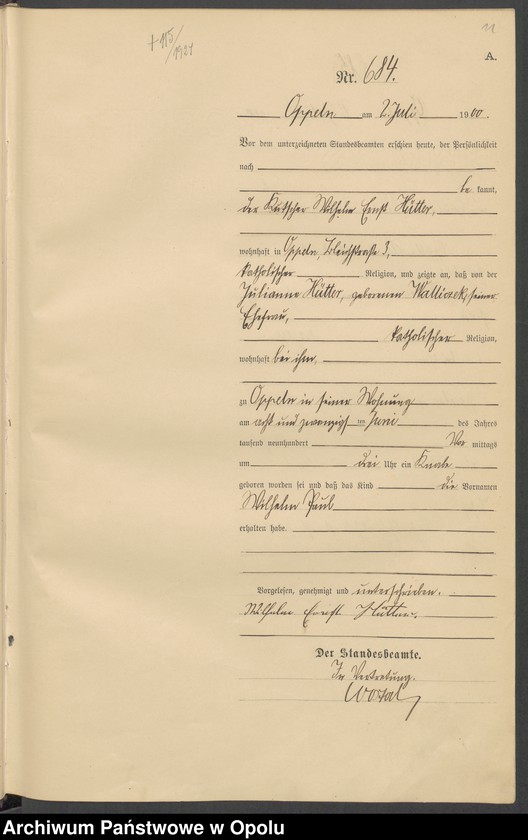 + 115/1921
11
A.
Nr. 684.
Oppeln am 2. Juli 1900.
Vor dem unterzeichneten Standesbeamten erschien heute, der Persönlichkeit
nach
be kannt,
der Kutscher Wilhelm Ernst Hütter,
wohnhaft in Oppeln, Bleichstraße 3,
katholischer Religion, und zeigte an, daß von der
Julianna Hütter, geborenen Wallissek, seiner
Ehefrau,
katholischer Religion,
wohnhaft bei ihm,
zu Oppeln in seiner Wohnung
am acht und zwanzigsten Juni des Jahres
tausend neunhundert Vor mittags
um drei Uhr ein Knabe
geboren worden sei und daß das Kind die Vornamen
Wilhelm Paul
erhalten habe.
Vorgelesen, genehmigt und unterschrieben.
Wilhelm Ernst Hütter.
Der Standesbeamte.
In Vertretung.
Archiwum Państwowe w Opolu